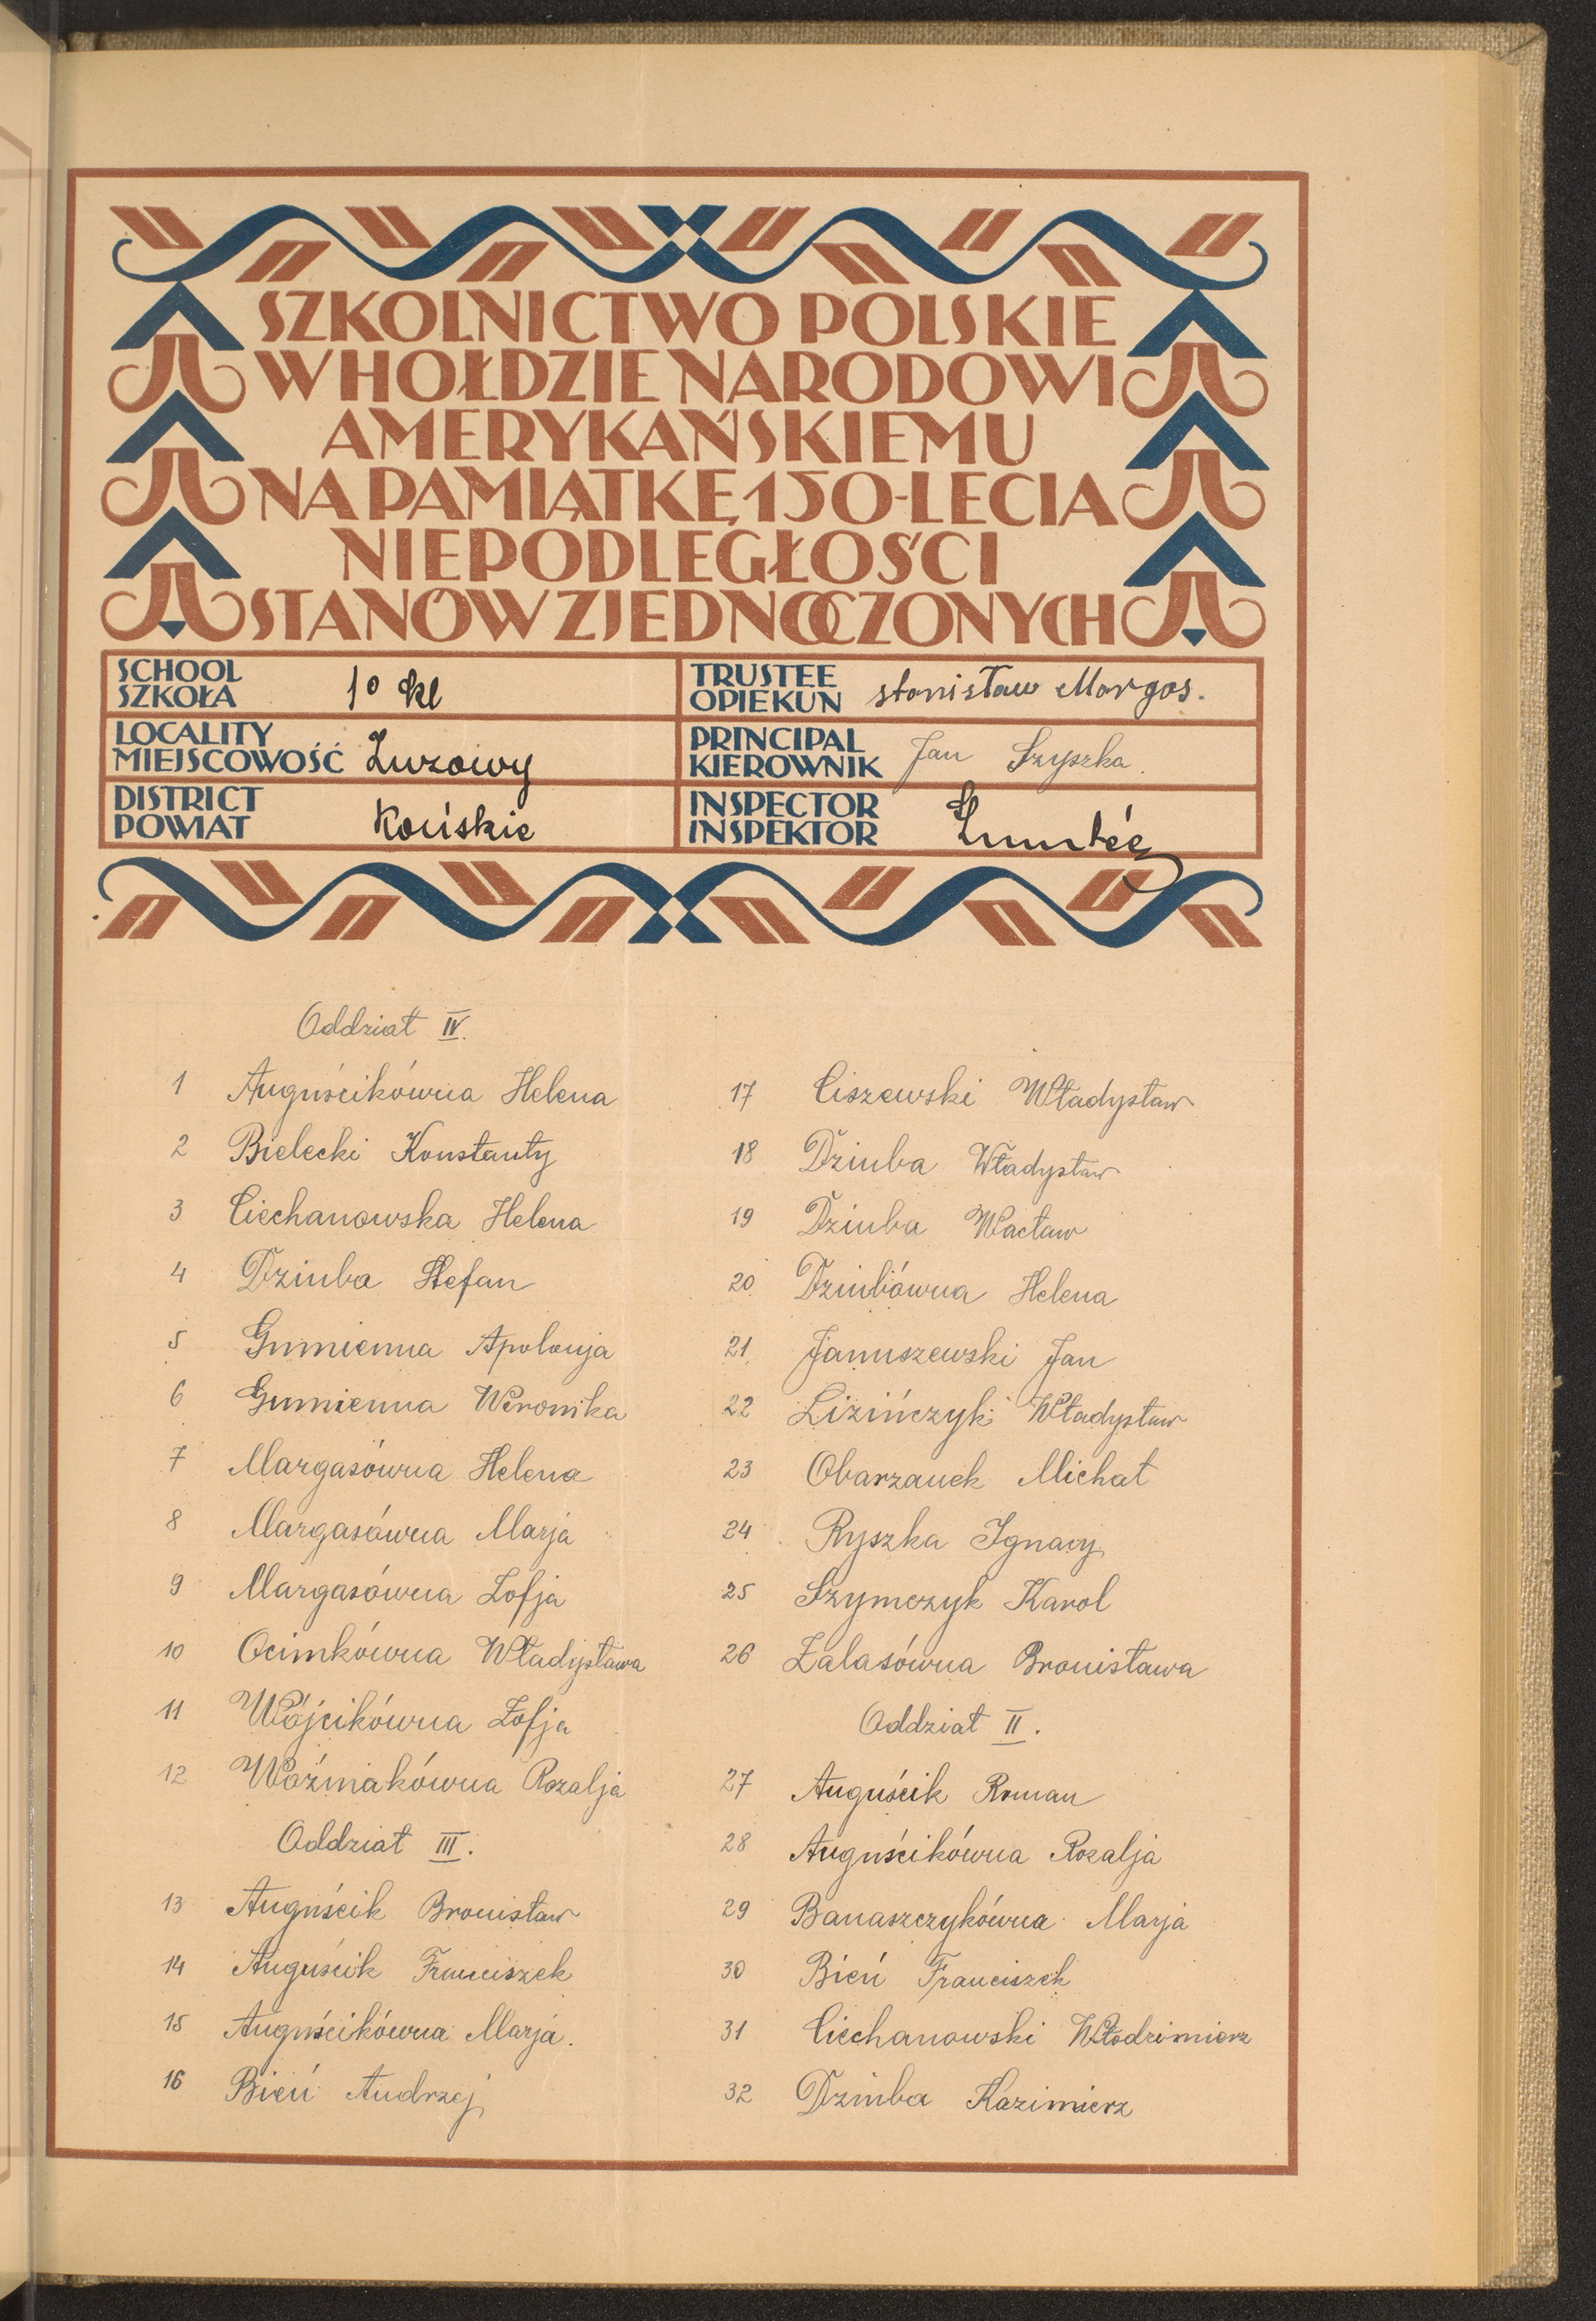 SZKOLNICTWO POLSKIE
W HOŁDZIE NARODOWI
AMERYKAŃSKIEMU
NA PAMIĄTKĘ 150-LECIA
NIEPODLEGŁOŚCI
STANÓW ZJEDNOCZONYCH
SCHOOL
SZKOŁA 1º kl
TRUSTEE
OPIEKUN Stanisław Margos.
LOCALITY
MIEJSCOWOŚĆ
PRINCIPAL
KIEROWNIK Jan Szyszka.
DISTRICT
POWIAT Końskie
INSPECTOR
INSPEKTOR
Oddział IV.
1 Auguścikówna Helena
2 Bielecki Konstanty
3 Ciechanowska Helena
4 Dziuba Stefan
5 Gumienna Apolonja
6 Gumienna Weronika
7 Margasówna Helena
8 Margasówna Marja
9 Margasówna Zofja
10 Ocimkówna Władysława
11 Wójcikówna Zofja
12 Woźniakówna Rozalja
Oddział III.
13 Auguścik Bronisław
14 Auguścik Franciszek
15 Auguścikówna Marja.
16 Bień Andrzej
17 Ciszewski Władysław
18 Dziuba Władysław
19 Dziuba Wacław
20 Dziubówna Helena
21 Januszewski Jan
22 Lizińczyk Władysław
23 Obarzanek Michał
24 Ryszka Ignacy
25 Szymczyk Karol
26 Zalasówna Bronisława
Oddział II.
27 Auguścik Roman
28 Auguścikówna Rozalja
29 Banaszczykówna Marja
30 Bień Franciszek
31 Ciechanowski Włodzimierz
32 Dziuba Kazimierz